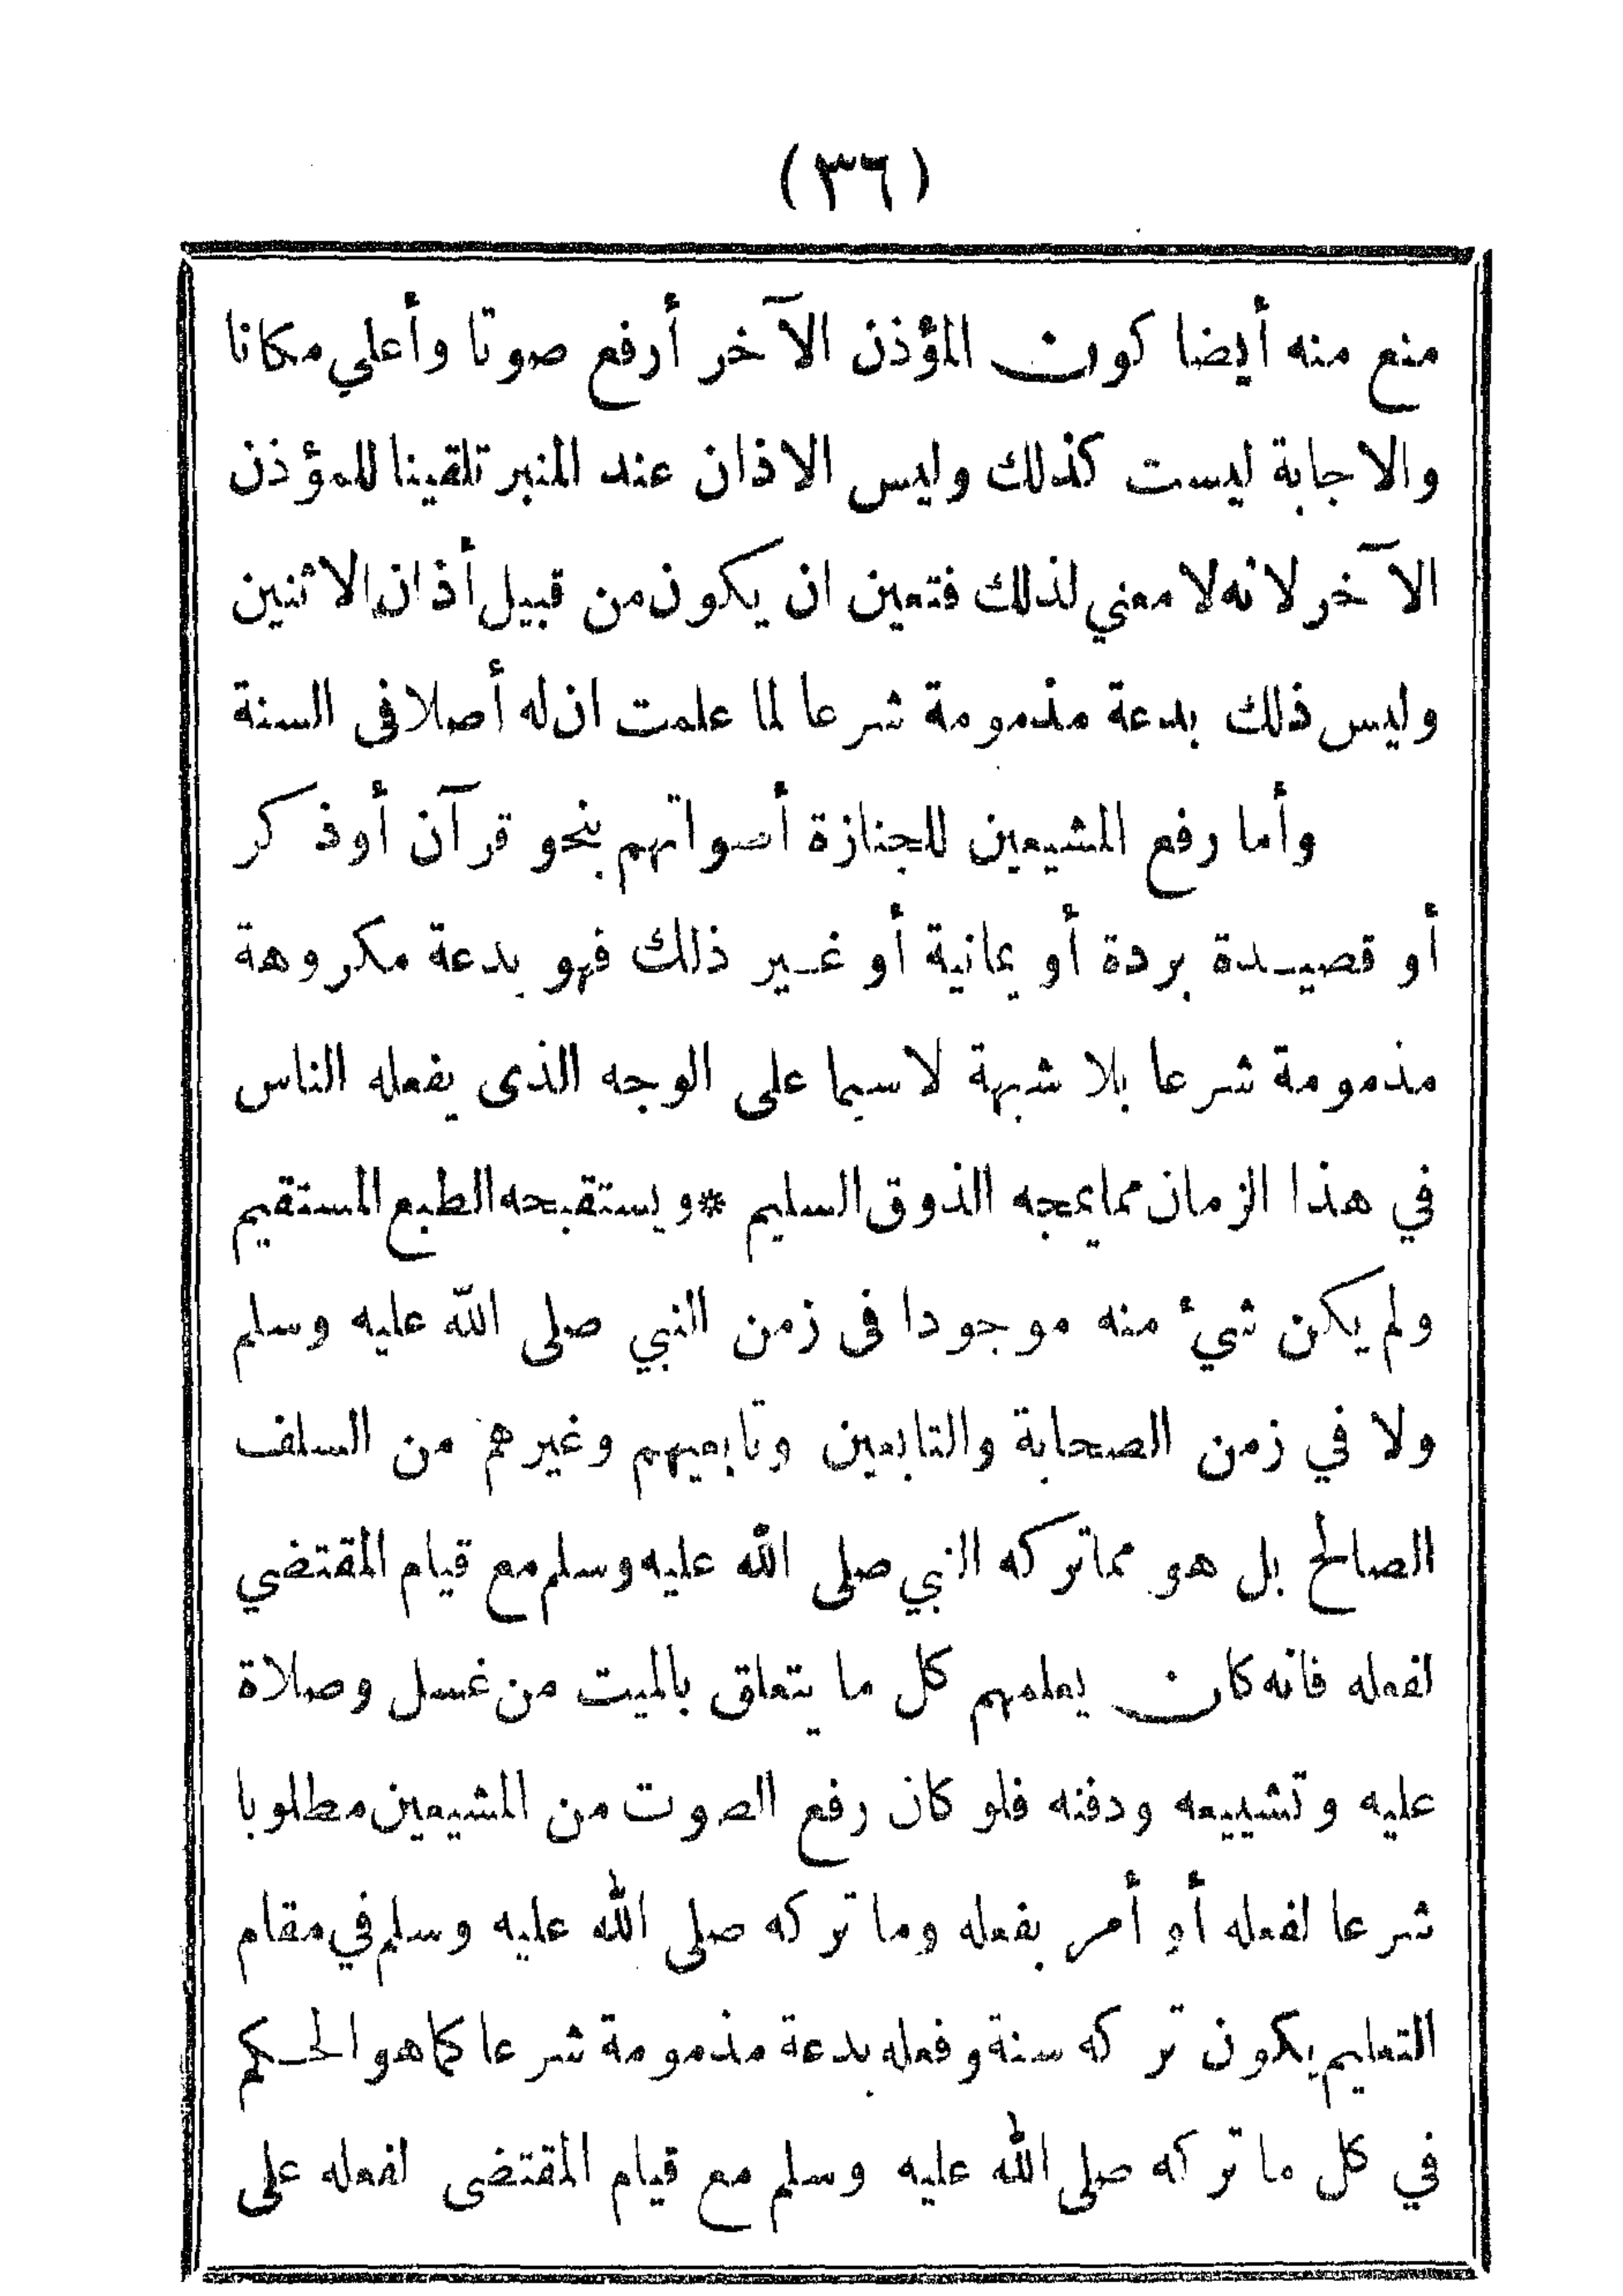 (٣٦)
منع منه أيضا كون المؤذن الآخر أرفع صوتا وأعلي مكانا
والاجابة ليست كذلك وليس الاذان عند المنبر تلقينا للمؤذن
الآخر لانه لا معني لذلك فتعين ان يكون من قبيل أذان الاثنين
وليس ذلك بدعة مذمومة شرعا لما علمت ان له أصلا فى السنة
وأما رفع المشيعين للجنازة أصواتهم بنحو قرآن أو ذكر
أو قصيدة بردة أو يمانية أو غير ذلك فهو بدعة مكروهة
مذمومة شرعا بلا شبهة لا سيما على الوجه الذى يفعله الناس
في هذا الزمان مما يمجه الذوق السليم * ويستقبحه الطبع المستقيم
ولم يكن شيء منه موجودا فى زمن النبي صلى الله عليه وسلم
ولا في زمن الصحابة والتابعين وتابعيهم وغيرهم من السلف
الصالح بل هو مما تركه النبي صلى الله عليه وسلم مع قيام المقتضي
لفعله فانه كان يعلمهم كل ما يتعلق بالميت من غسل وصلاة
عليه وتشييعه ودفنه فلو كان رفع الصوت من المشيعين مطلوبا
شرعا لفعله أو أمر بفعله وما تركه صلى الله عليه وسلم في مقام
التعليم يكون تركه سنة وفعله بدعة مذمومة شرعا كما هو الحكم
في كل ما تركه صلى الله عليه وسلم مع قيام المقتضى لفعله على